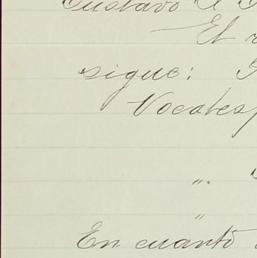 Gustavo A
El
sigue:
Vocales
"
"
En cuanto